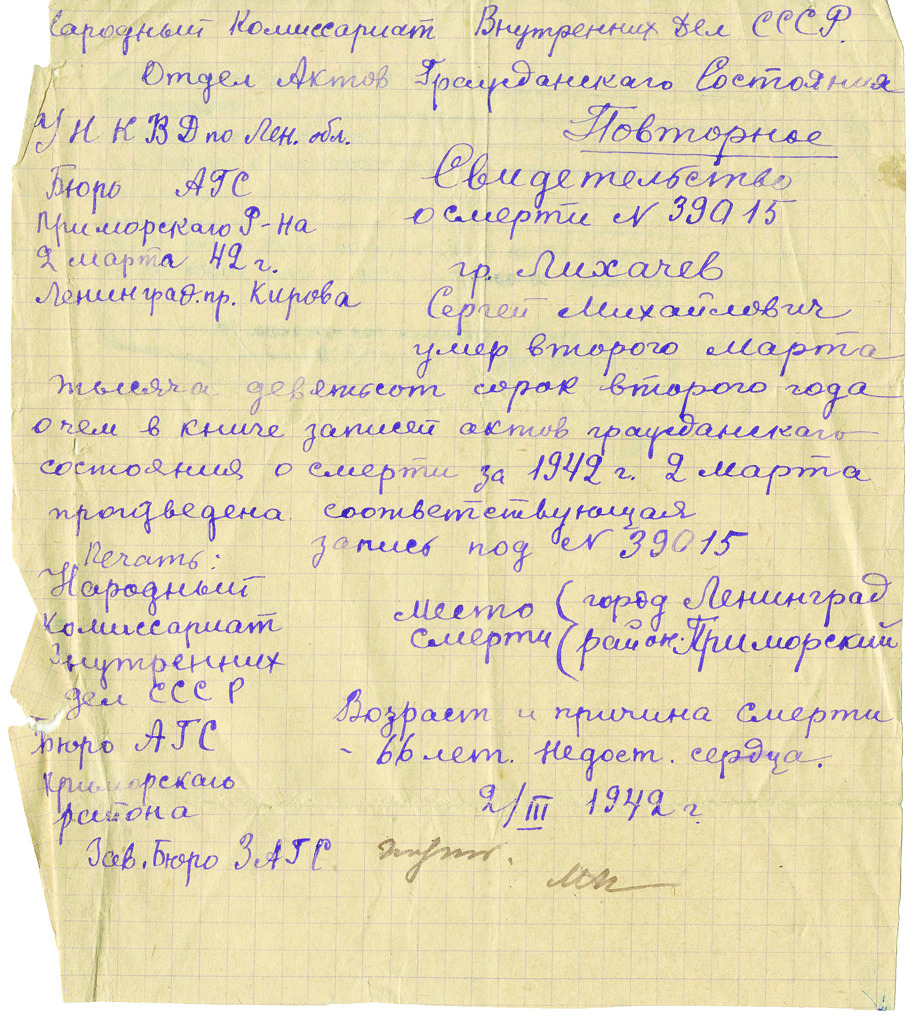 Народный Комиссариат Внутренних Дел СССР.
Отдел Актов Гражданскаго Состояния
У Н К В Д по Лен. обл.
Повторное
Бюро АГС
Свидетельство
Приморскаго Р-на
о смерти N 39015
2 марта 42 г.
гр. Лихачев
Ленинград. пр. Кирова
Сергей Михайлович
умер второго Марта
тысяча девятьсот сорок второго года
о чем в книге записей актов гражданскаго
состояния о смерти за 1942 г. 2 марта
произведена соответствующая
запись под N 39015
Печать:
Народный
Комиссариат
Внутренних
дел СССР
Бюро АГС
Приморскаго
района
Место ( город Ленинград
смерти ( район: Приморский
Возраст и причина смерти
- 66 лет. Недост. сердца.
2/III 1942 г.
Зав. Бюро ЗАГС